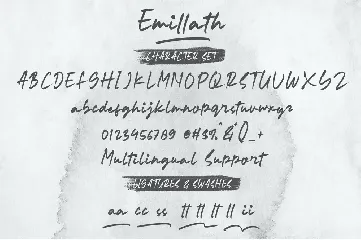 Emillath
CHARACTER SET
ABCDEFGHIJKLMNOPQRSTUVWXYZ
abcdefghijklmnopqrstuvwxyz
0123456789 @#$% & () _ +
Multilingual Support
LIGATURES & SWASHES
aa cc ss tt tt tt tt ii